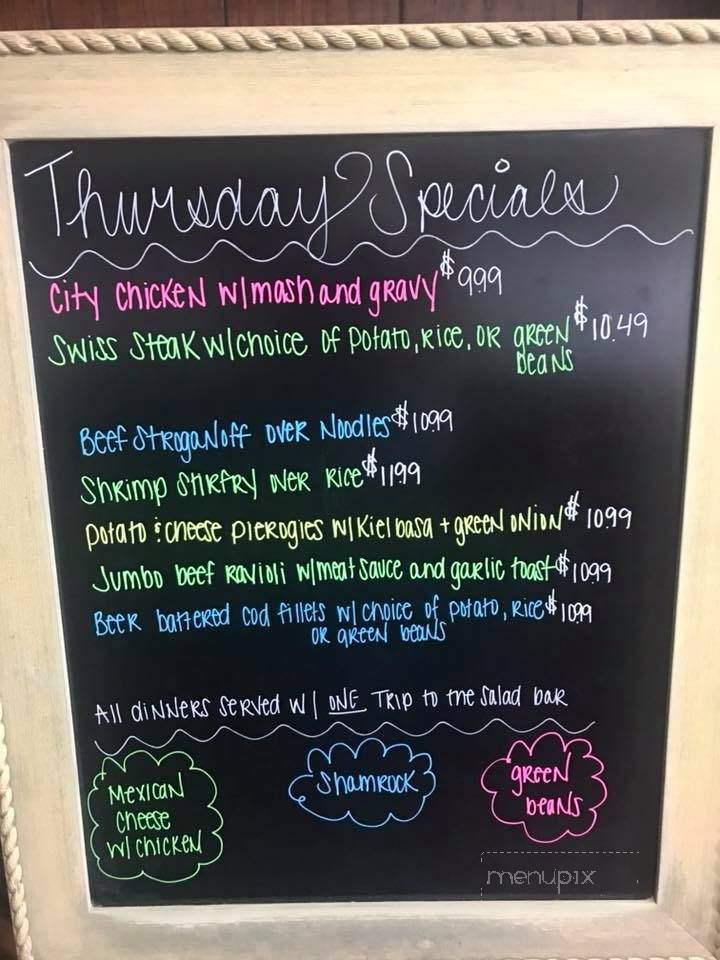 Thursday Specials
City Chicken w/mash and gravy $9.99
Swiss Steak w/choice of potato, rice, or green $10.49
beans
Beef Stroganoff over Noodles $10.99
Shrimp Stirfry over rice $11.99
Potato & cheese pierogies w/Kielbasa + green onion $10.99
Jumbo beef ravioli w/meat sauce and garlic toast $10.99
Beer battered cod fillets w/ choice of potato, rice $10.99
or green beans
All dinners served w/ ONE Trip to the salad bar
Mexican
cheese
w/ chicken
Shamrock
green
beans
menupix